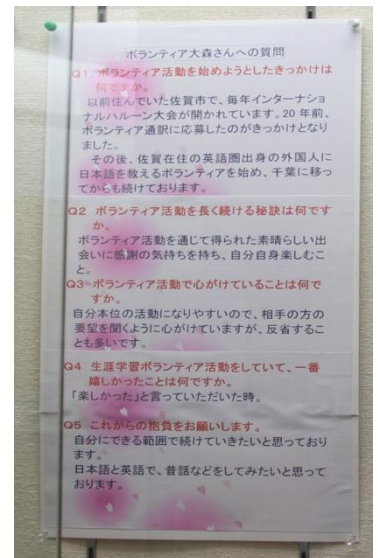 ボランティア大森さんへの質問
Q1. ボランティア活動を始めようとしたきっかけは
何ですか。
以前住んでいた佐賀市で、毎年インターナショ
ナルハルーン大会が開かれています。20 年前、
ボランティア通訳に応募したのがきっかけとなり
ました。
その後、佐賀在住の英語圏出身の外国人に
日本語を教えるボランティアを始め、千葉に移っ
てからも続けております。
Q2 ボランティア活動を長く続ける秘訣は何です
か。
ボランティア活動を通じて得られた素晴らしい出
会いに感謝の気持ちを持ち、自分自身楽しむこ
と。
Q3 ボランティア活動で心がけていることは何で
すか。
自分本位の活動になりやすいので、相手の方の
要望を聞くように心がけていますが、反省するこ
とも多いです。
Q4 生涯学習ボランティア活動をしていて、一番
嬉しかったことは何ですか。
「楽しかった」と言っていただいた時。
Q5 これからの抱負をお願いします。
自分にできる範囲で続けていきたいと思っており
ます。
日本語と英語で、昔話などをしてみたいと思って
おります。